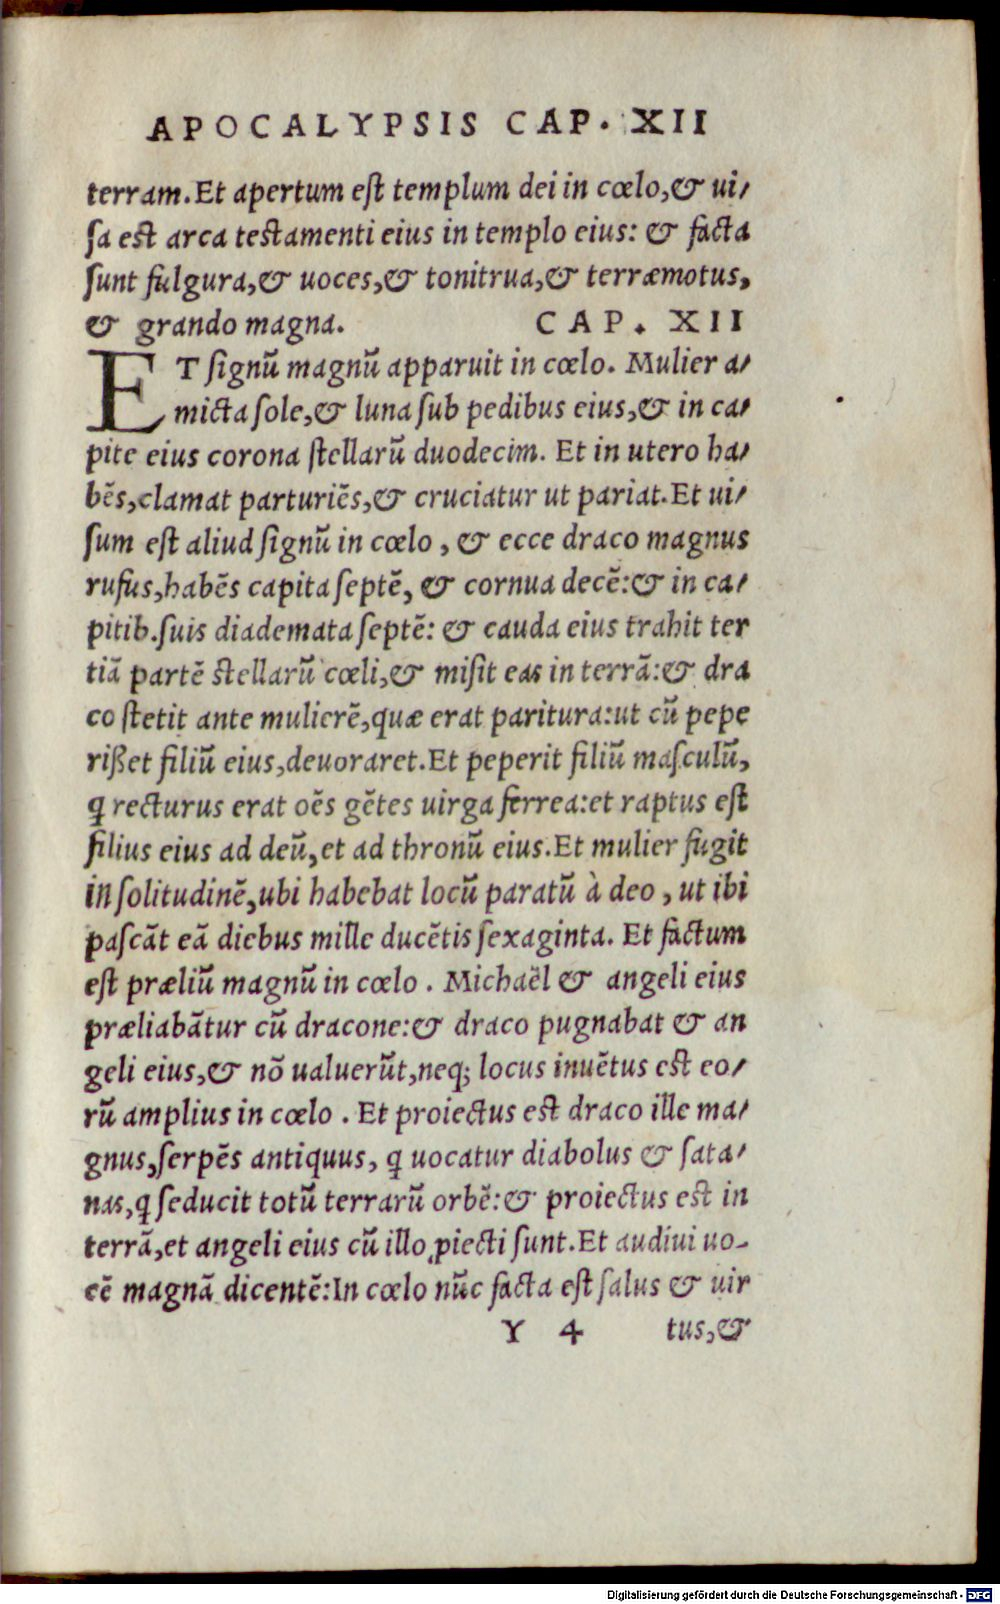 APOCALYPSIS CAP. XII
terram. Et apertum est templum dei in cœlo, & ui/
sa est arca testamenti eius in templo eius: & facta
sunt fulgura, & uoces, & tonitrua, & terræmotus,
& grando magna. CAP. XII
ET signũ magnũ apparuit in cœlo. Mulier a/
micta sole, & luna sub pedibus eius, & in ca/
pite eius corona stellarũ duodecim. Et in utero ha/
bẽs, clamat parturiẽs, & cruciatur ut pariat. Et ui/
sum est aliud signũ in cœlo, & ecce draco magnus
rufus, habẽs capita septẽ, & cornua decẽ: & in ca/
pitib. suis diademata septẽ: & cauda eius trahit ter
tiã partẽ stellarũ cœli, & misit eas in terrã: & dra
co stetit ante mulierẽ, quæ erat paritura: ut cũ pepe
rißet filiũ eius, deuoraret. Et peperit filiũ masculũ,
ꝗ recturus erat oẽs gẽtes uirga ferrea: et raptus est
filius eius ad deũ, et ad thronũ eius. Et mulier fugit
in solitudinẽ, ubi habebat locũ paratũ à deo, ut ibi
pascãt eã diebus mille ducẽtis sexaginta. Et factum
est præliũ magnũ in cœlo. Michaël & angeli eius
præliabãtur cũ dracone: & draco pugnabat & an
geli eius, & nõ ualuerũt, neq; locus inuẽtus est eo/
rũ amplius in cœlo. Et proiectus est draco ille ma/
gnus, serpẽs antiquus, ꝗ uocatur diabolus & sata/
nas, ꝗ seducit totũ terrarũ orbẽ: & proiectus est in
terrã, et angeli eius cũ illo ꝓiecti sunt. Et audiui uo-
cẽ magnã dicentẽ: In cœlo nũc facta est salus & uir
Y 4 tus, &
Digitalisierung gefördert durch die Deutsche Forschungsgemeinschaft - DFG